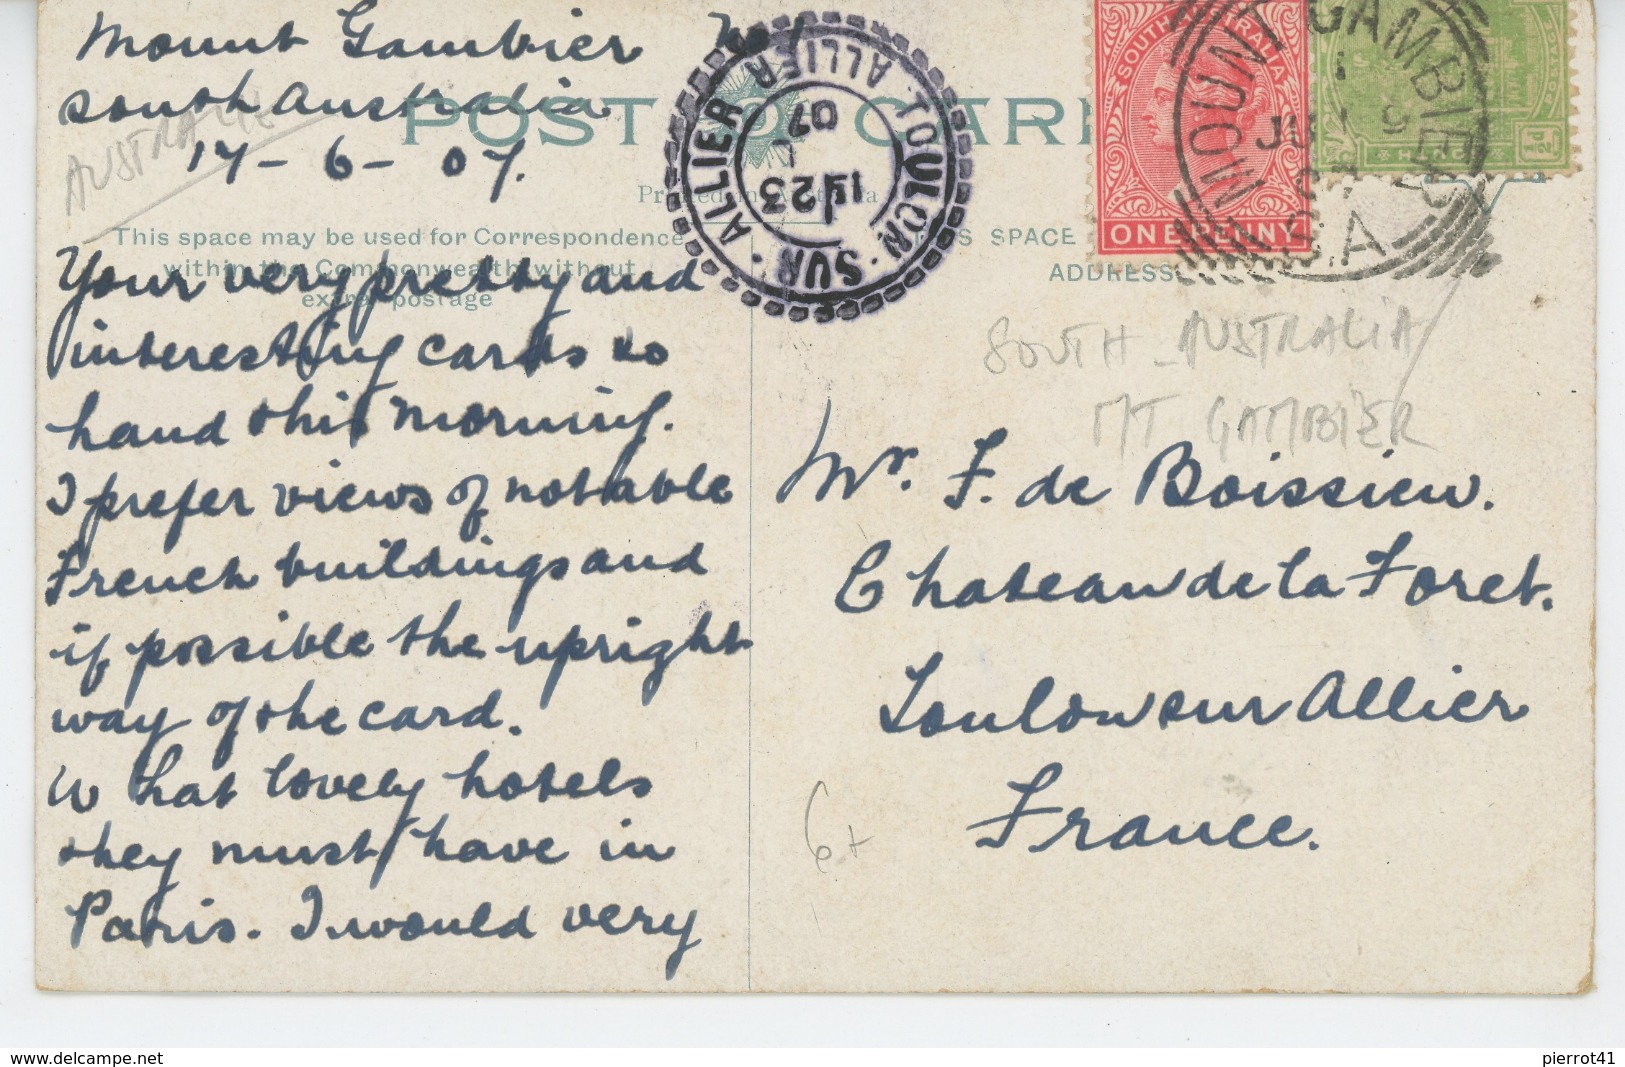 Mount Gambier No 1
South Australia
17-6-07.
AUSTRALIE
POST CARD
Printed in Australia
This space may be used for Correspondence
within the Commonwealth without
extra postage
THIS SPACE
ADDRESS
SOUTH AUSTRALIA
ONE PENNY
MOUNT GAMBIER
S.A
TOULON-SUR-ALLIER
ALLIER
23
07
Your very pretty and
interesting cards to
hand this morning.
I prefer views of notable
French buildings and
if possible the upright
way of the card.
What lovely hotels
they must have in
Paris. I would very
SOUTH-AUSTRALIA
MT GAMBIER
Mr. F. de Boissieu.
Chateau de la Foret.
Toulon sur Allier
France.
6+
www.delcampe.com
pierrot41